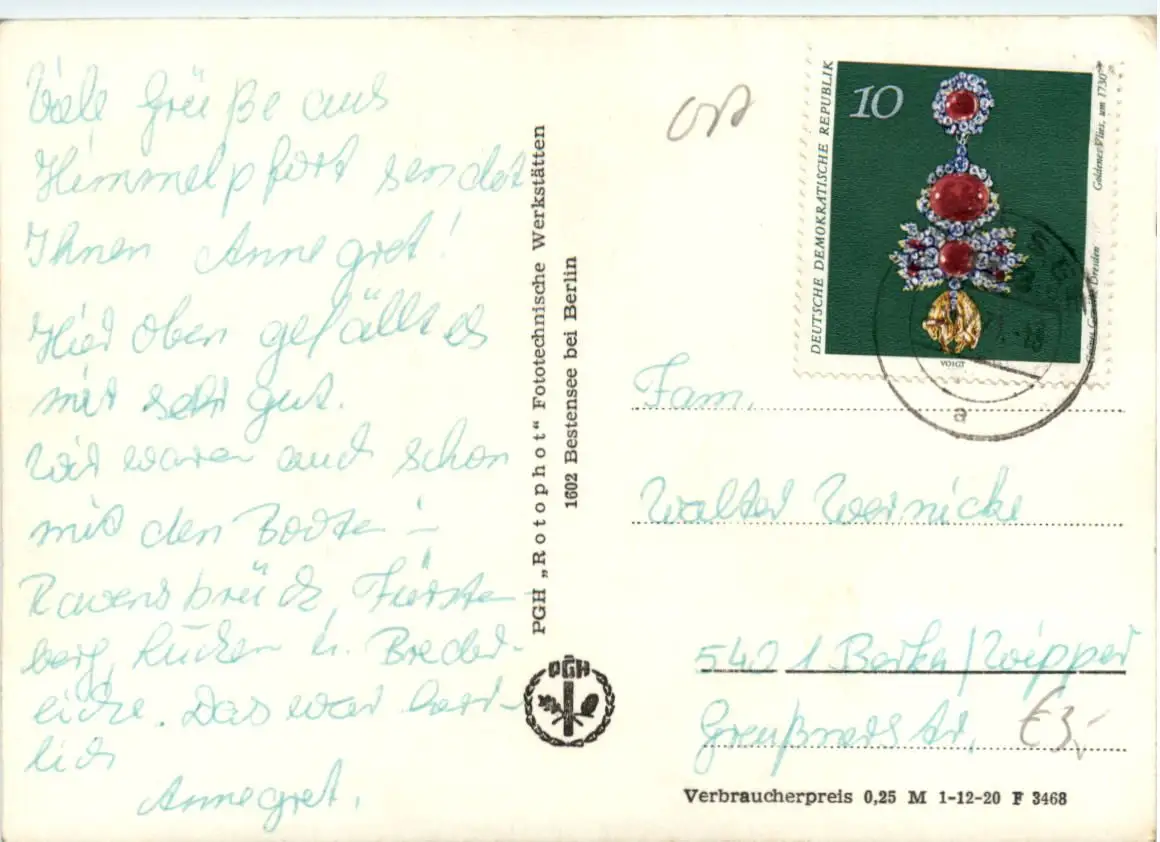 Viele Grüße aus
Himmelpfort sendet
Ihnen Annegret!
Hier oben gefällt es
mir sehr gut.
Wir waren auch schon
mit den Booten in
Ravensbrück, Fürsten-
berg, u. Breder-
eiche. Das war herr-
lich
Annegret.
PGH „Rotophot" Fototechnische Werkstätten
1602 Bestensee bei Berlin
PGH
Ost
DEUTSCHE DEMOKRATISCHE REPUBLIK
10
Goldenes Vlies, um 1730
Grünes Gewölbe Dresden
VOIGT
a
Fam.
Walter Wernicke
5401 Berka/Wipper
Greußner Str.
€3,-
Verbraucherpreis 0,25 M 1-12-20 F 3468